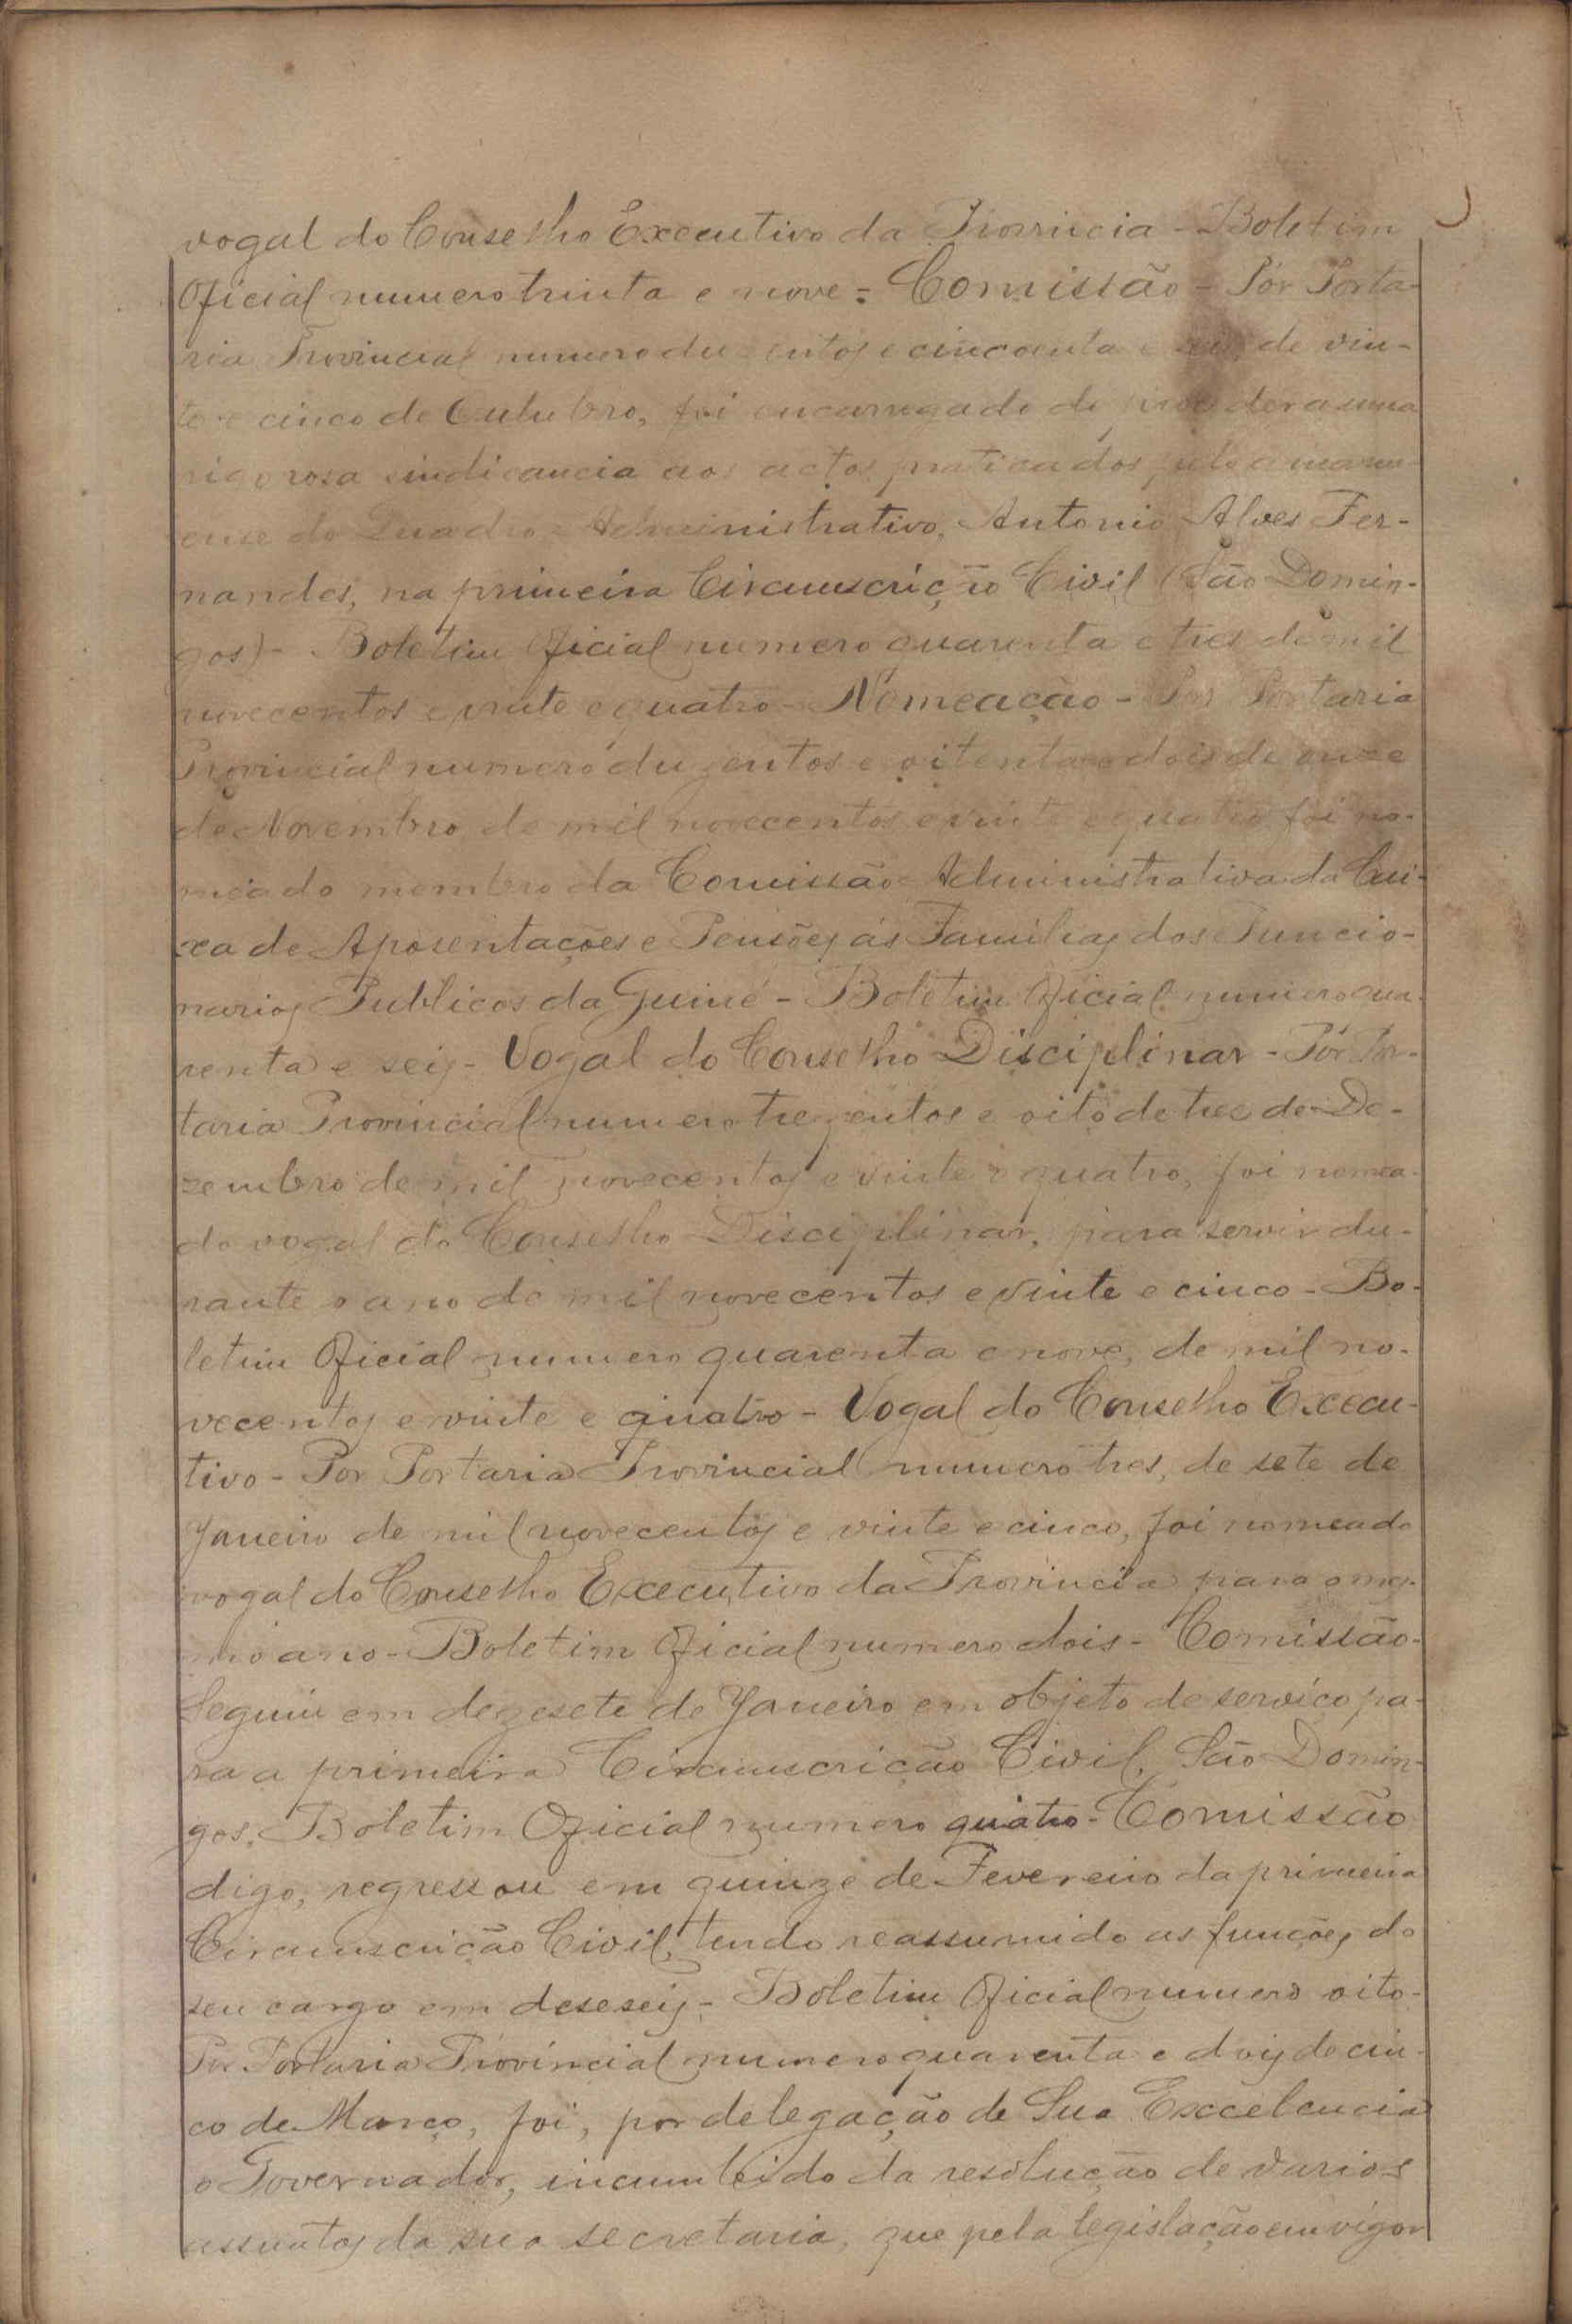 vogal do Conselho Executivo da Provincia - Boletim
Oficial numero trinta e nove = Comissão - Pór Porta-
ria Provincial numero duzentos e cincoenta e seis de vin-
te e cinco de Outubro, foi encarregado de proceder a uma
rigorosa sindicancia aos actos praticados pelo amanu-
ense do Quadro Administrativo, Antonio Alves Fer-
nandes, na primeira Circunscrição Civil (São Domin-
gos) - Boletim Oficial numero quarenta e tres de mil
novecentos e vinte e quatro - Nomeação - Por Portaria
Provincial numero duzentos e oitenta e dois de onze
de Novembro de mil novecentos e vinte e quatro foi no-
meado membro da Comissão Administrativa da Cai-
xa de Aposentações e Pensões ás Familias dos Funcio-
narios Publicos da Guiné - Boletim Oficial numero qua-
renta e seis - Vogal do Conselho Disciplinar - Pór Por-
taria Provincial numero trezentos e oito de tres de De-
zembro de mil novecentos e vinte e quatro, foi nomea-
do vogal do Conselho Disciplinar, para servir du-
rante o ano de mil novecentos e vinte e cinco - Bo-
letim Oficial numero quarenta e nove, de mil no-
vecentos e vinte e quatro - Vogal do Conselho Execu-
tivo - Por Portaria Provincial numero tres, de sete de
Janeiro de mil novecentos e vinte e cinco, foi nomeado
vogal do Conselho Executivo da Provincia para o mes-
mo ano - Boletim Oficial numero dois - Comissão -
Seguiu em dezesete de Janeiro em objeto de serviço pa-
ra a primeira Circunscrição Civil, São Domin-
gos, Boletim Oficial numero quatro - Comissão
digo, regressou em quinze de Fevereiro da primeira
Circunscrição Civil, tendo reassumido as funções do
seu cargo em deseseis - Boletim Oficial numero oito -
Por Portaria Provincial numero quarenta e dois de cin-
co de Março, foi, por delegação de Sua Excelencia
o Governador, incumbido da resolução de varios
assuntos da sua secretaria, que pela legislação em vigor